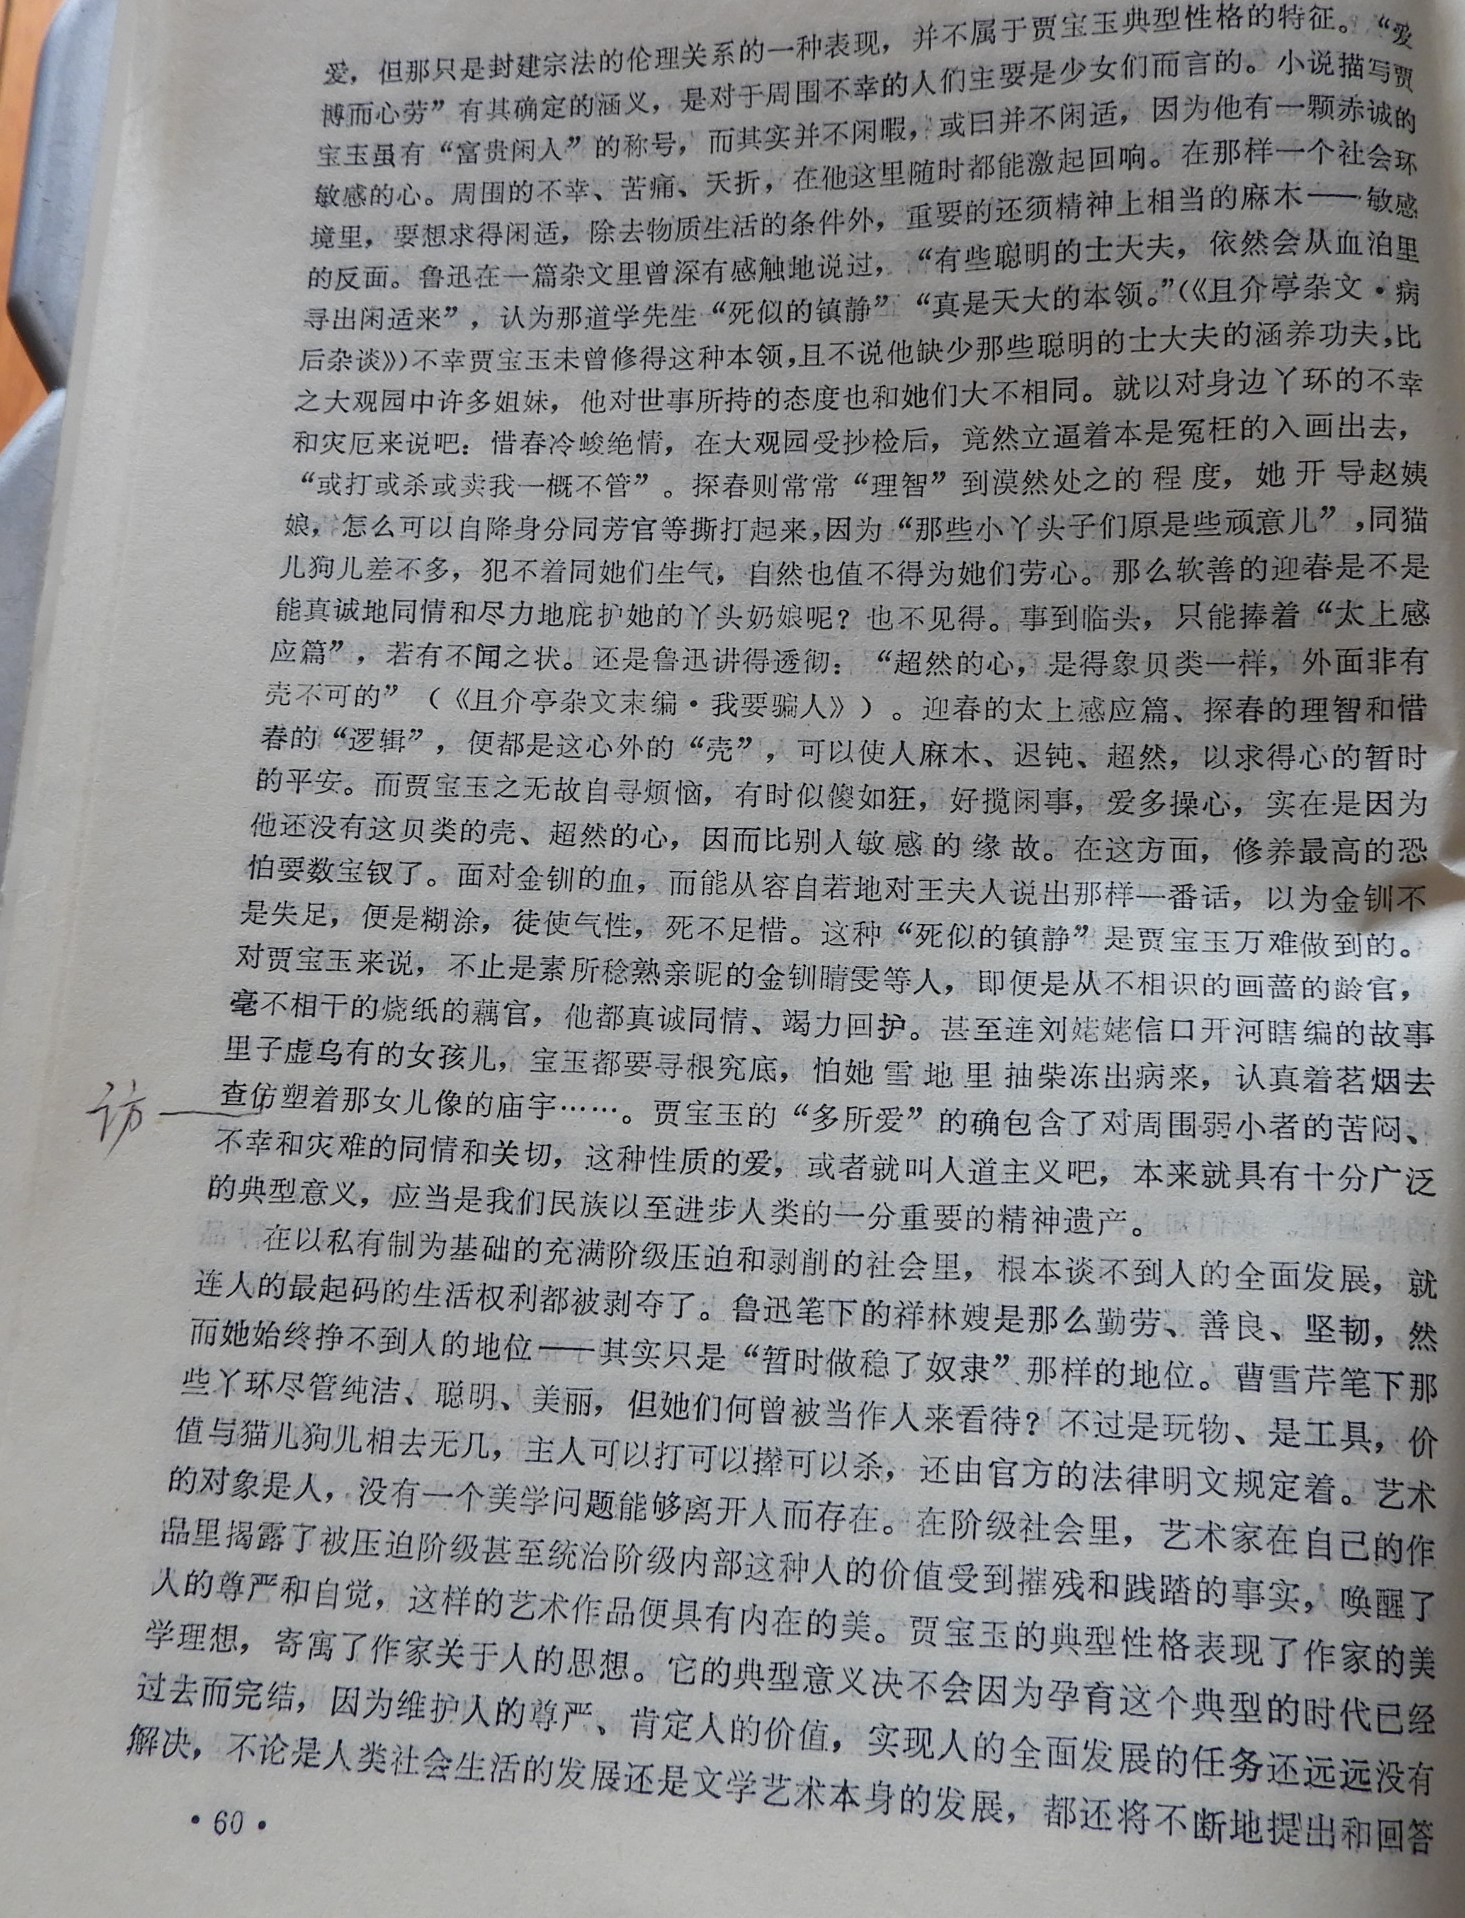 爱，但那只是封建宗法的伦理关系的一种表现，并不属于贾宝玉典型性格的特征。“爱
博而心劳”有其确定的涵义，是对于周围不幸的人们主要是少女们而言的。小说描写贾
宝玉虽有“富贵闲人”的称号，而其实并不闲暇，或曰并不闲适，因为他有一颗赤诚的
敏感的心。周围的不幸、苦痛、夭折，在他这里随时都能激起回响。在那样一个社会环
境里，要想求得闲适，除去物质生活的条件外，重要的还须精神上相当的麻木——敏感
的反面。鲁迅在一篇杂文里曾深有感触地说过，“有些聪明的士大夫，依然会从血泊里
寻出闲适来”，认为那道学先生“死似的镇静”“真是天大的本领。”（《且介亭杂文·病
后杂谈》）不幸贾宝玉未曾修得这种本领，且不说他缺少那些聪明的士大夫的涵养功夫，比
之大观园中许多姐妹，他对世事所持的态度也和她们大不相同。就以对身边丫环的不幸
和灾厄来说吧：惜春冷峻绝情，在大观园受抄检后，竟然立逼着本是冤枉的入画出去，
“或打或杀或卖我一概不管”。探春则常常“理智”到漠然处之的程度，她开导赵姨
娘，怎么可以自降身分同芳官等撕打起来，因为“那些小丫头子们原是些顽意儿”，同猫
儿狗儿差不多，犯不着同她们生气，自然也值不得为她们劳心。那么软善的迎春是不是
能真诚地同情和尽力地庇护她的丫头奶娘呢？也不见得。事到临头，只能捧着“太上感
应篇”，若有不闻之状。还是鲁迅讲得透彻：“超然的心，是得象贝类一样，外面非有
壳不可的”（《且介亭杂文末编·我要骗人》）。迎春的太上感应篇、探春的理智和惜
春的“逻辑”，便都是这心外的“壳”，可以使人麻木、迟钝、超然，以求得心的暂时
的平安。而贾宝玉之无故自寻烦恼，有时似傻如狂，好揽闲事，爱多操心，实在是因为
他还没有这贝类的壳、超然的心，因而比别人敏感的缘故。在这方面，修养最高的恐
怕要数宝钗了。面对金钏的血，而能从容自若地对王夫人说出那样一番话，以为金钏不
是失足，便是糊涂，徒使气性，死不足惜。这种“死似的镇静”是贾宝玉万难做到的。
对贾宝玉来说，不止是素所稔熟亲昵的金钏晴雯等人，即便是从不相识的画蔷的龄官，
毫不相干的烧纸的藕官，他都真诚同情、竭力回护。甚至连刘姥姥信口开河瞎编的故事
里子虚乌有的女孩儿，宝玉都要寻根究底，怕她雪地里抽柴冻出病来，认真着茗烟去
查仿塑着那女儿像的庙宇……。贾宝玉的“多所爱”的确包含了对周围弱小者的苦闷、
访
不幸和灾难的同情和关切，这种性质的爱，或者就叫人道主义吧，本来就具有十分广泛
的典型意义，应当是我们民族以至进步人类的一分重要的精神遗产。
在以私有制为基础的充满阶级压迫和剥削的社会里，根本谈不到人的全面发展，就
连人的最起码的生活权利都被剥夺了。鲁迅笔下的祥林嫂是那么勤劳、善良、坚韧，然
而她始终挣不到人的地位——其实只是“暂时做稳了奴隶”那样的地位。曹雪芹笔下那
些丫环尽管纯洁、聪明、美丽，但她们何曾被当作人来看待？不过是玩物、是工具，价
值与猫儿狗儿相去无几，主人可以打可以撵可以杀，还由官方的法律明文规定着。艺术
的对象是人，没有一个美学问题能够离开人而存在。在阶级社会里，艺术家在自己的作
品里揭露了被压迫阶级甚至统治阶级内部这种人的价值受到摧残和践踏的事实，唤醒了
人的尊严和自觉，这样的艺术作品便具有内在的美。贾宝玉的典型性格表现了作家的美
学理想，寄寓了作家关于人的思想。它的典型意义决不会因为孕育这个典型的时代已经
过去而完结，因为维护人的尊严、肯定人的价值，实现人的全面发展的任务还远远没有
解决，不论是人类社会生活的发展还是文学艺术本身的发展，都还将不断地提出和回答
·60·